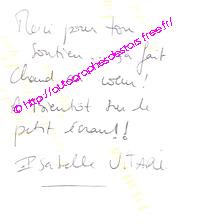 Merci pour ton
soutien ça fait
Chaud coeur!
A bientôt sur le
petit écran!!
Isabelle V.
© http://autographesdestars.free.fr/